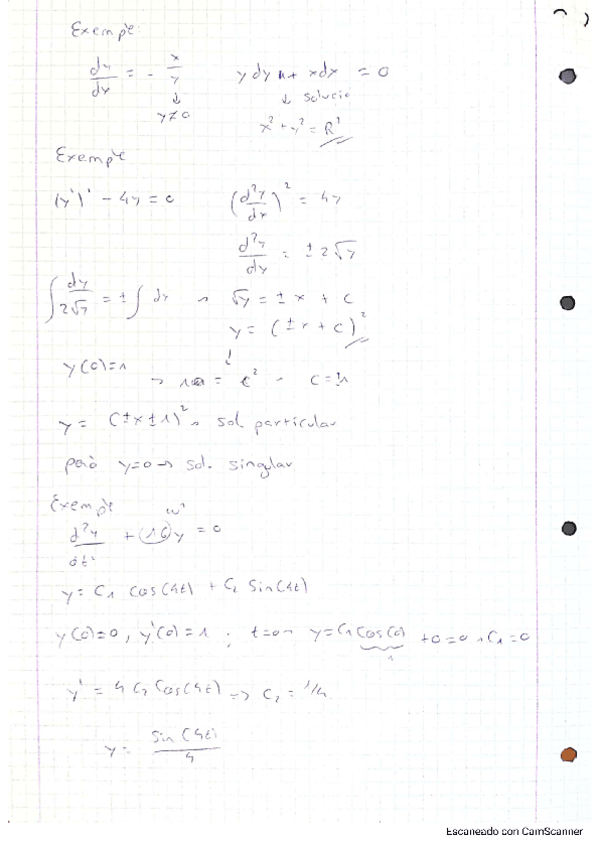 Exemple
dy/dx = - x/y    y dy + x dx = 0
↓    ↓ solució
y≠0    x² + y² = R²
Exemple
(y')² - 4y = 0    (d²y/dx)² = 4y
d²y/dx = ± 2√y
∫ dy/2√y = ± ∫ dx → √y = ± x + C
y = (± x + C)²
y(0)=1    ↓
→ 1 = C² → C = ±1
y = (±x ± 1)² → sol particular
però y=0 → sol. singular
Exemple
d²y/dt² + (16)y = 0    ω²
y = C₁ cos(4t) + C₂ sin(4t)
y(0)=0, y'(0)=1 ; t=0 → y = C₁ cos(0) + 0 = 0 → C₁ = 0
1
y' = 4 C₂ cos(4t) => C₂ = 1/4
y = sin(4t)/4
Escaneado con CamScanner